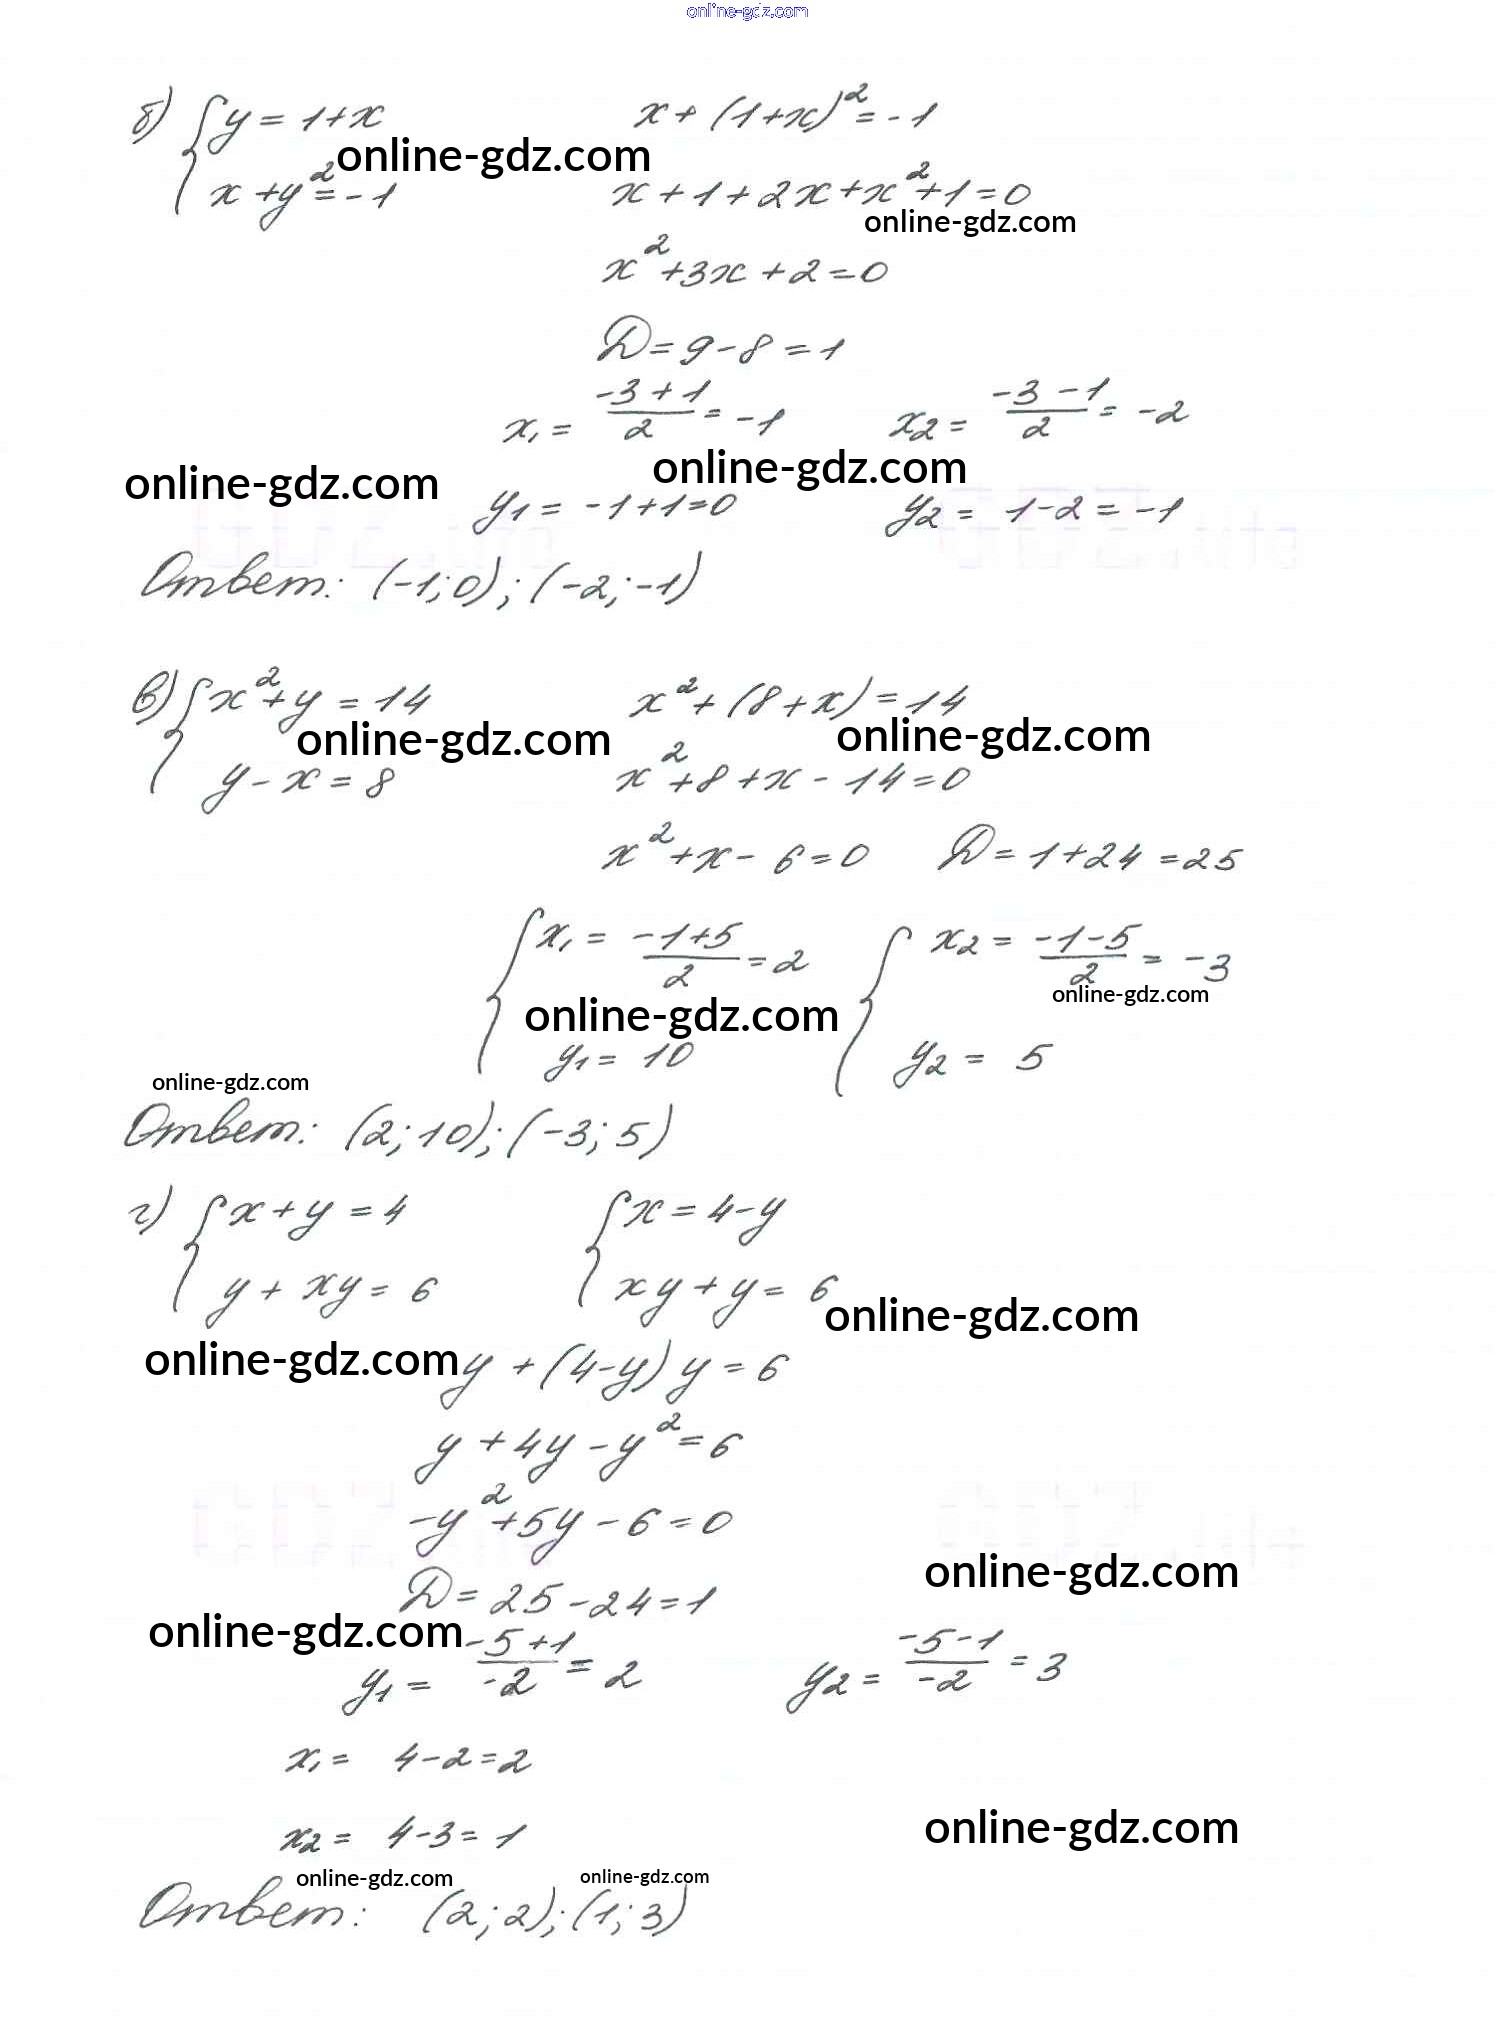 online-gdz.com
б) { y = 1+x    x + (1+x)² = -1
online-gdz.com
x + y² = -1    x + 1 + 2x + x² + 1 = 0
online-gdz.com
x² + 3x + 2 = 0
D = 9 - 8 = 1
x₁ = (-3+1)/2 = -1    x₂ = (-3-1)/2 = -2
online-gdz.com    online-gdz.com
y₁ = -1+1=0    y₂ = 1-2 = -1
Ответ: (-1;0); (-2;-1)
в) { x² + y = 14    x² + (8+x) = 14
online-gdz.com    online-gdz.com
y - x = 8    x² + 8 + x - 14 = 0
x² + x - 6 = 0    D = 1+24 = 25
{ x₁ = (-1+5)/2 = 2    { x₂ = (-1-5)/2 = -3
online-gdz.com    online-gdz.com
y₁ = 10    y₂ = 5
online-gdz.com
Ответ: (2;10); (-3;5)
г) { x + y = 4    { x = 4-y
y + xy = 6    xy + y = 6
online-gdz.com
online-gdz.com y + (4-y) y = 6
y + 4y - y² = 6
-y² + 5y - 6 = 0
online-gdz.com
D = 25 - 24 = 1
online-gdz.com
y₁ = (-5+1)/-2 = 2    y₂ = (-5-1)/-2 = 3
x₁ = 4-2=2
x₂ = 4-3=1    online-gdz.com
online-gdz.com    online-gdz.com
Ответ: (2;2); (1;3)